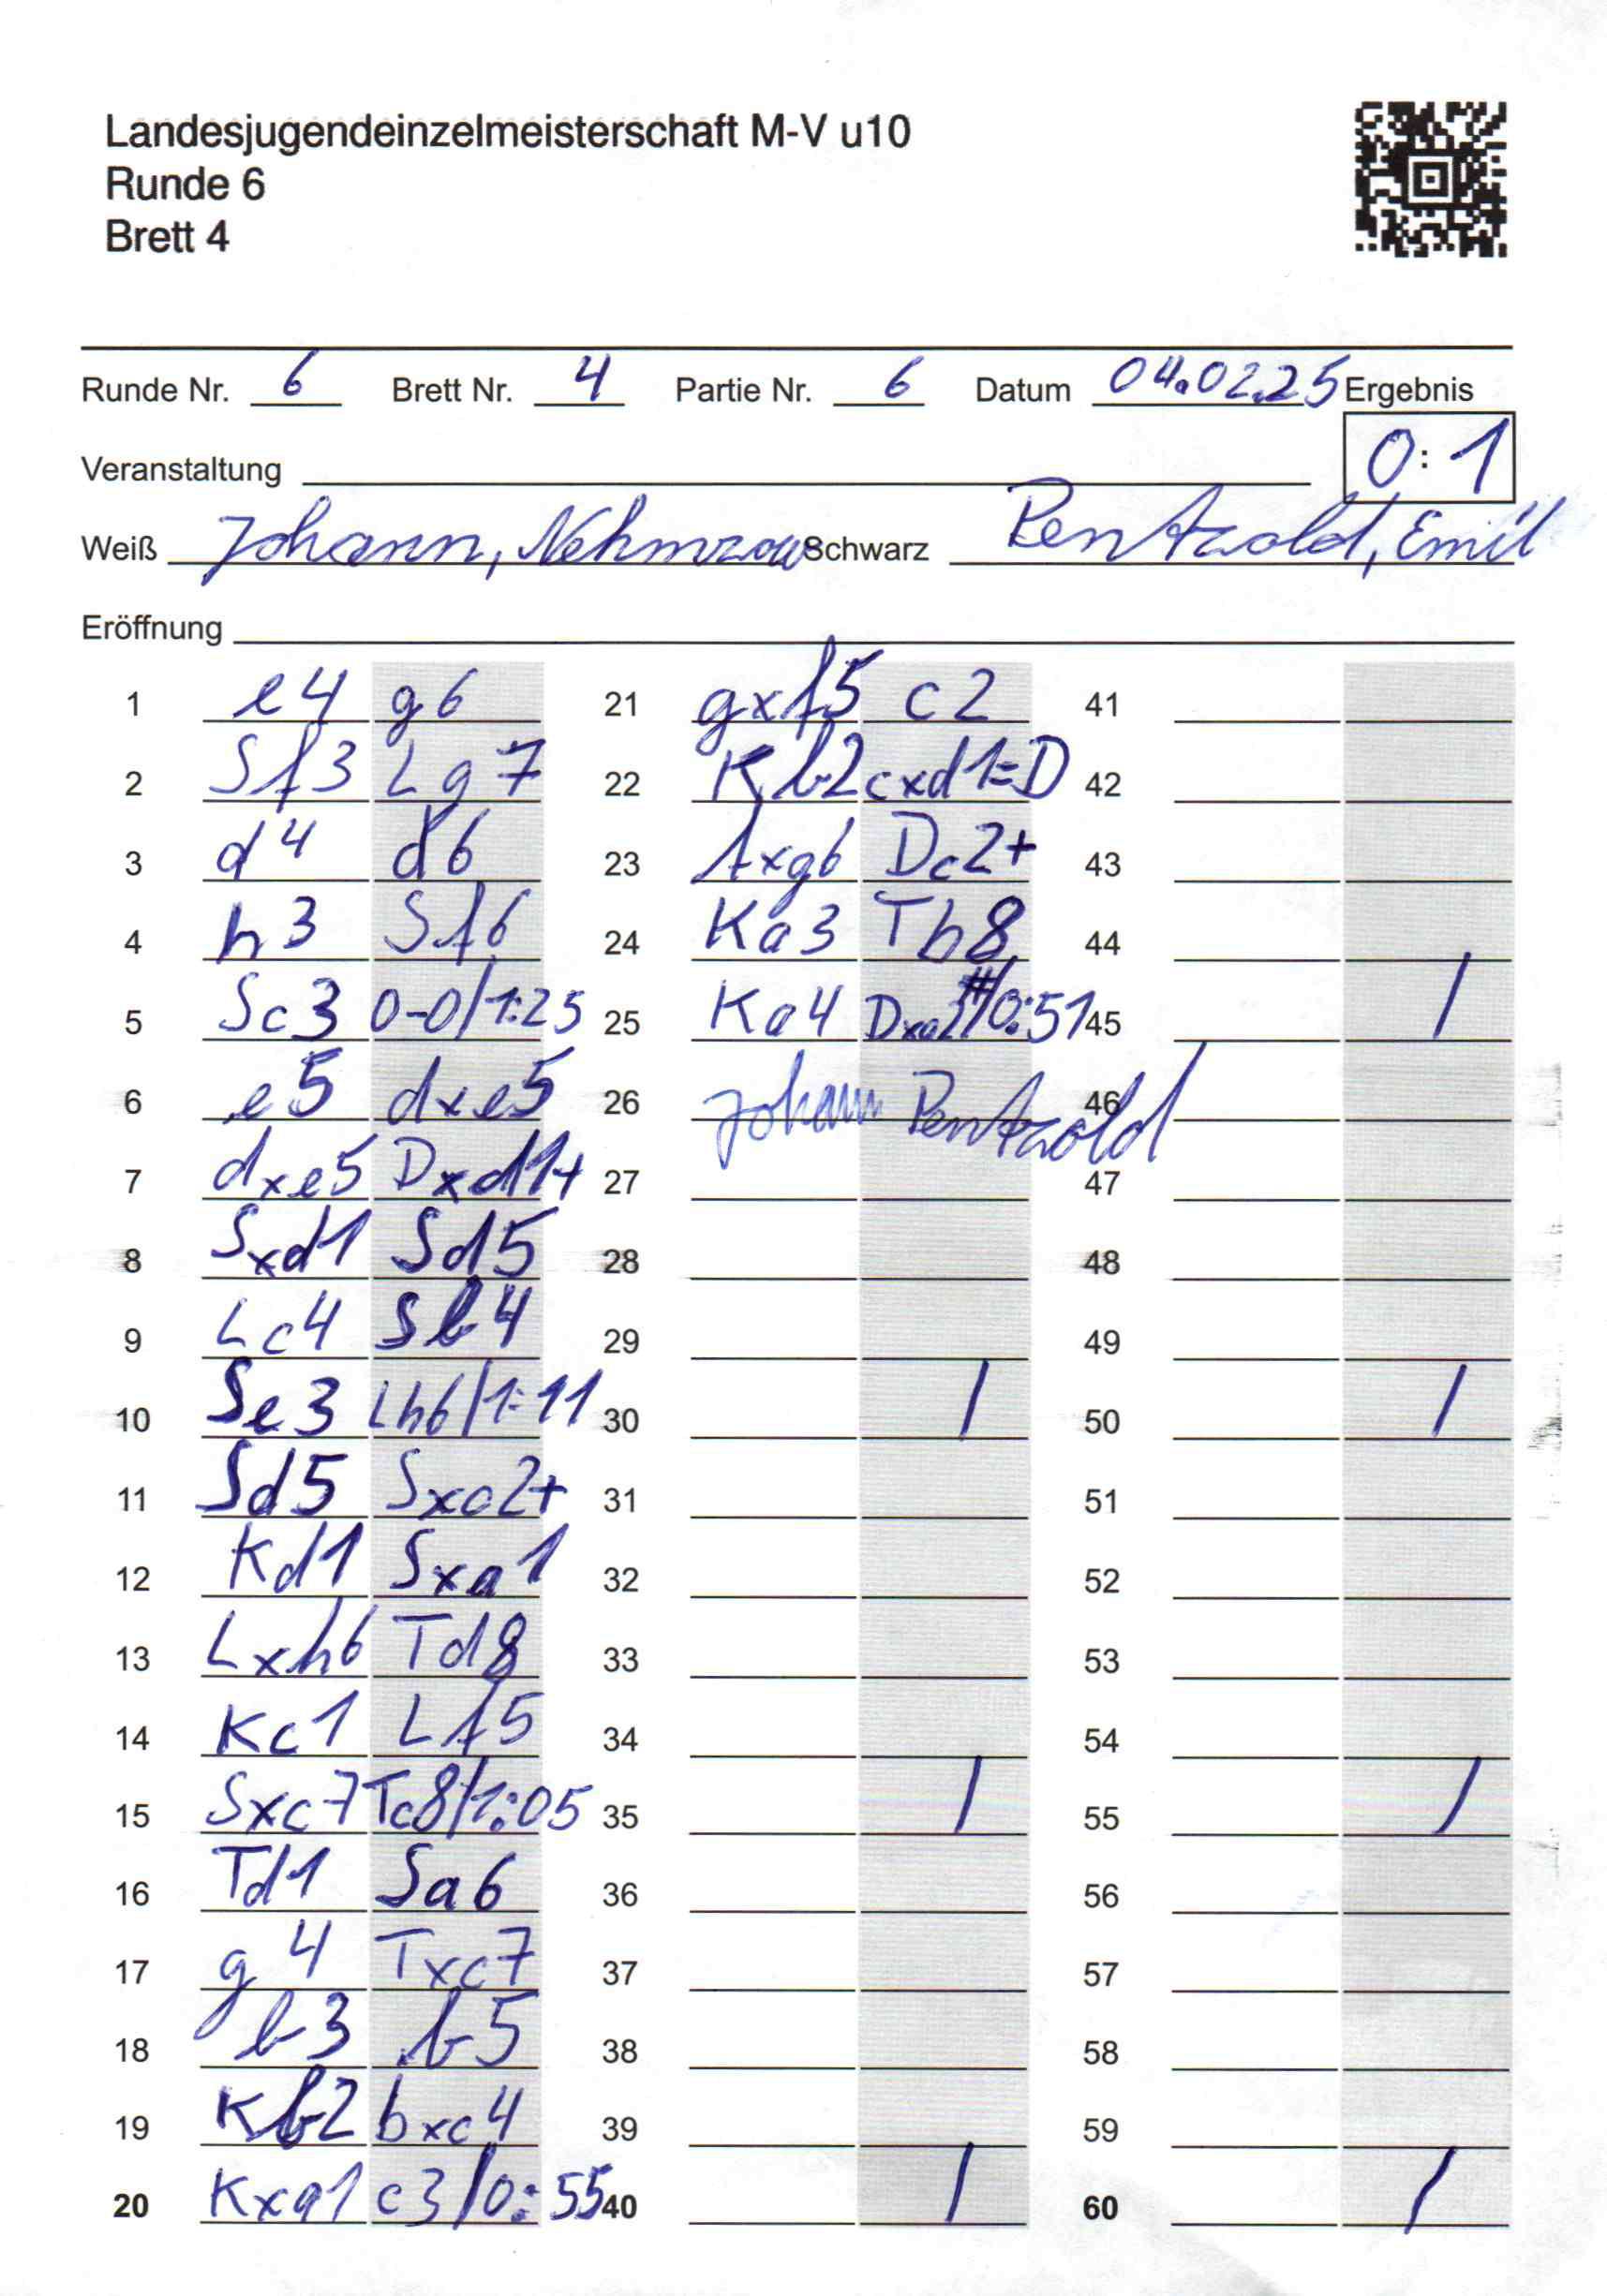 Landesjugendeinzelmeisterschaft M-V u10
Runde 6
Brett 4
Runde Nr. 6 Brett Nr. 4 Partie Nr. 6 Datum 04.02.25 Ergebnis
0:1
Veranstaltung
Weiß Johann, Nehmzow Schwarz Pentzold, Emil
Eröffnung
1 e4 g6 21 gxf5 c2 41
2 Sf3 Lg7 22 Kb2 cxd1=D 42
3 d4 d6 23 fxg6 Dc2+ 43
4 h3 Sf6 24 Ka3 Tb8 44
5 Sc3 0-0/1:25 25 Ka4 Dxa2#/0:51 45 /
6 e5 dxe5 26 Johann Pentzold 46
7 dxe5 Dxd1+ 27 47
8 Sxd1 Sd5 28 48
9 Lc4 Sb4 29 49
10 Se3 Lh6/1:11 30 / 50 /
11 Sd5 Sxc2+ 31 51
12 Kd1 Sxa1 32 52
13 Lxh6 Td8 33 53
14 Kc1 Lf5 34 54
15 Sxc7 Tc8/1:05 35 / 55 /
16 Td1 Sa6 36 56
17 g4 Txc7 37 57
18 b3 b5 38 58
19 Kb2 bxc4 39 59
20 Kxa1 c3/0:55 40 / 60 /